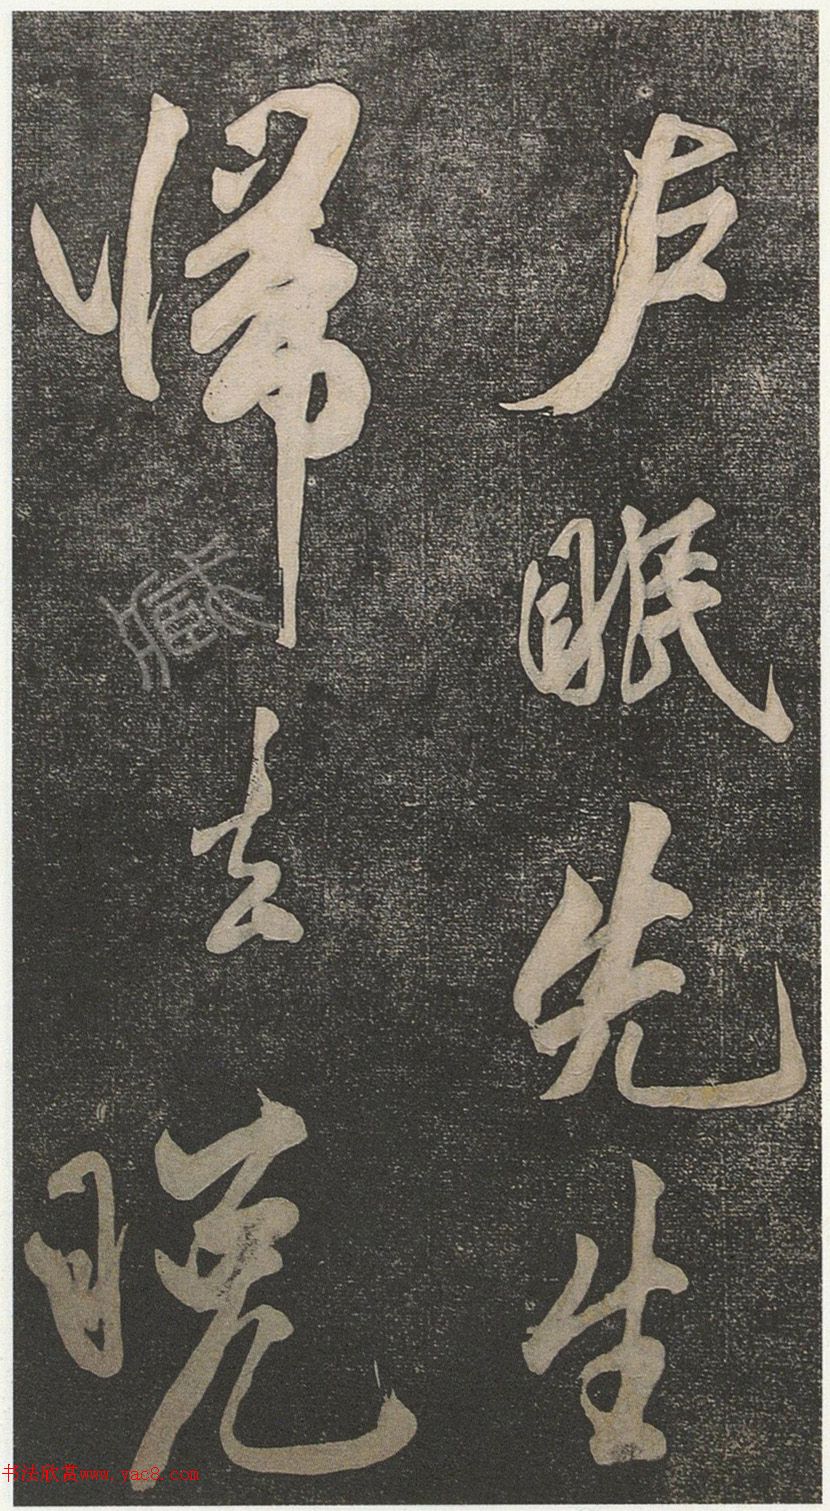 戶眠先生
歸去晚
书法欣赏www.yac8.com